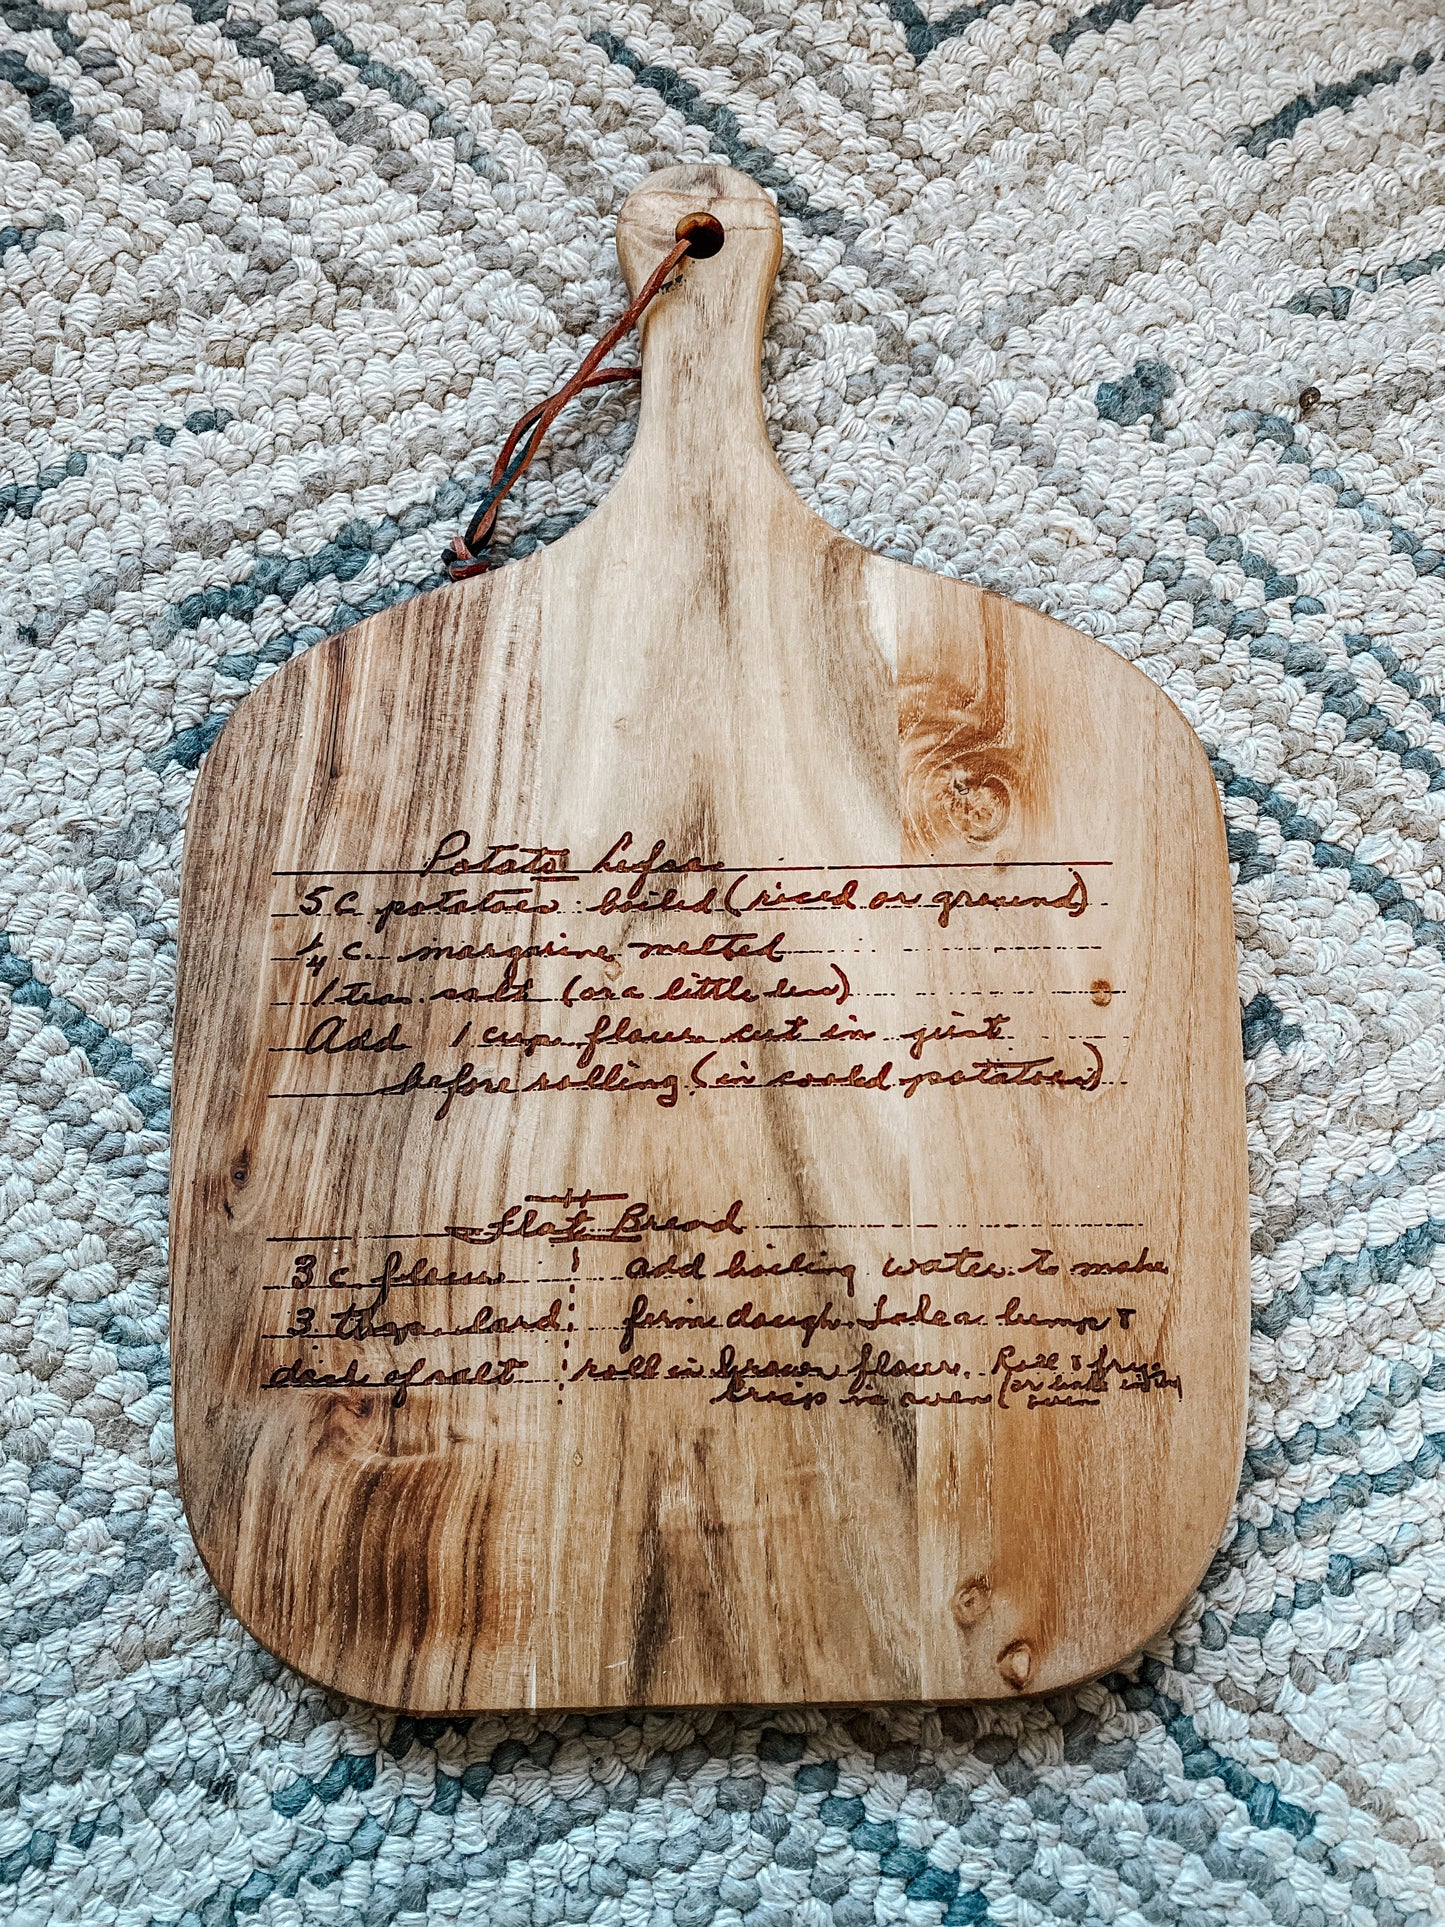 Potato Lefsa
5 c potatoes boiled (riced or ground)
1/4 c. margarine melted
1 teas. salt (or a little less)
Add 1 cup flour cut in just
before rolling (in cooled potatoes)
Flat Bread
3 c flour add boiling water to make
3 tbsp. lard firm dough. Take a lump &
dash of salt roll in brown flour. Roll & fry
crisp in oven (or bake in oven)